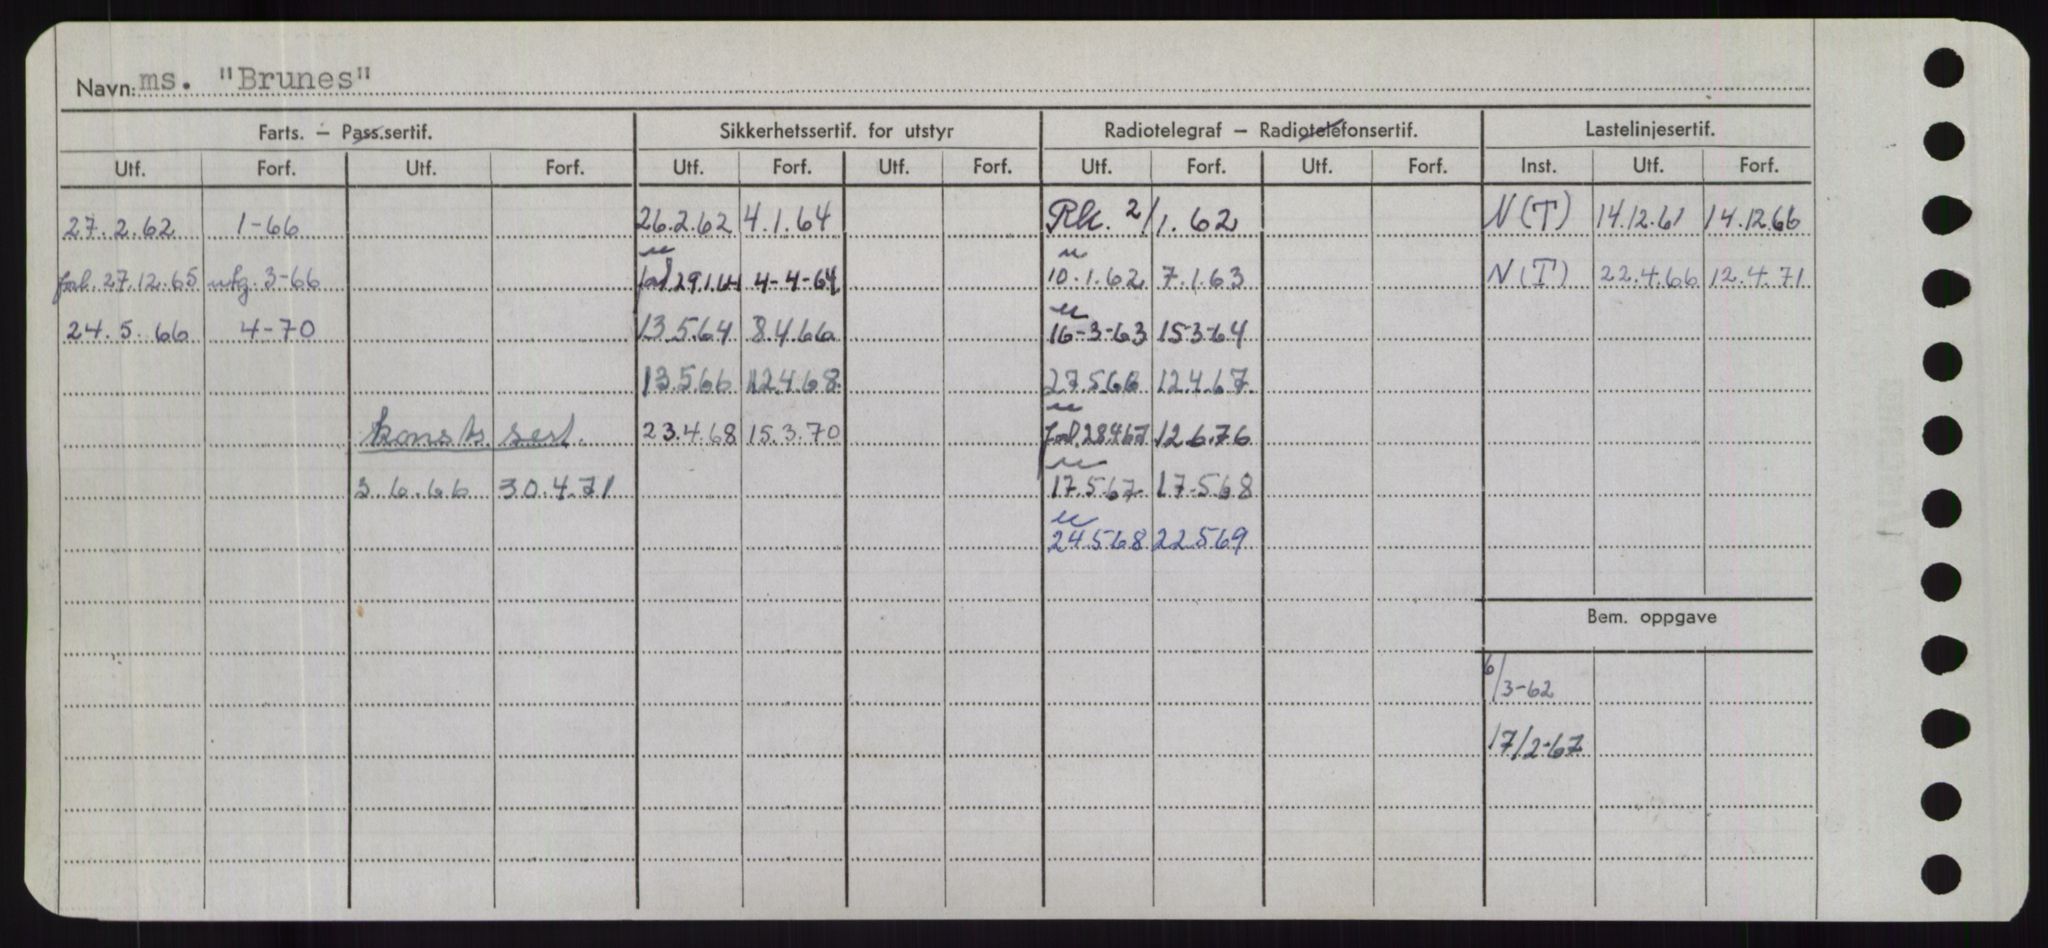 Navn: ms. "Brunes"
Farts. – Pass.sertif. Sikkerhetssertif. for utstyr Radiotelegraf – Radiotelefonsertif. Lastelinjesertif.
Utf. Forf. Utf. Forf. Utf. Forf. Utf. Forf. Utf. Forf. Utf. Forf. Inst. Utf. Forf.
27.2.62 1-66 26.2.62 4.1.64 Rk. 2/1.62 N(T) 14.12.61 14.12.66
forl. 27.12.65 utg. 3-66 forl. 4-4-64 10.1.62 7.1.63 N(T) 22.4.66 12.4.71
24.5.66 4-70 13.5.64 8.4.66 16-3-63 15-3-64
13.5.66 12.4.68 27.5.66 12.4.67
konstr. sert. 23.4.68 15.3.70 forl. 28.4.67
3.6.66 30.4.71 17.5.67 17.5.68
24.5.68 22.5.69
Bem. oppgave
6/3-62
17/2-67